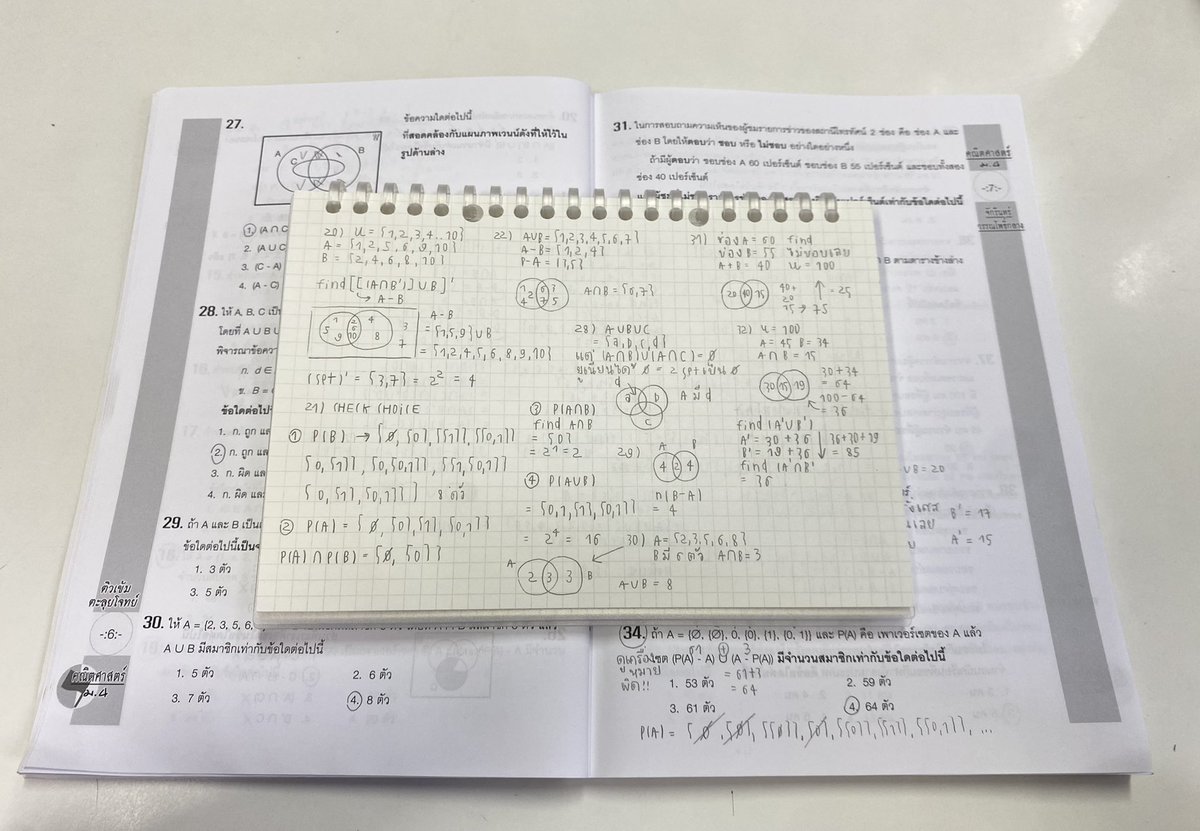 27.
ข้อความใดต่อไปนี้
ที่สอดคล้องกับแผนภาพเวนน์ดังที่ให้ไว้ใน
รูปด้านล่าง
A
B
C
1 (A ∩ C
2. (A U C
3. (C - A)
4. (A - C)
28. ให้ A, B, C เป็น
โดยที่ A U B U
พิจารณาข้อควา
ก. d ∈
ข. B =
ข้อใดต่อไป
1. ก. ถูก แล
2. ก. ถูก แล
3. ก. ผิด และ
4. ก. ผิด และ
29. ถ้า A และ B เป็น
ข้อใดต่อไปนี้เป็นจ
1. 3 ตัว
3. 5 ตัว
ติวเข้ม
ตะลุยโจทย์
-:6:-
คณิตศาสตร์
ม.4
30. ให้ A = {2, 3, 5, 6,
A U B มีสมาชิกเท่ากับข้อใดต่อไปนี้
1. 5 ตัว
2. 6 ตัว
3. 7 ตัว
4. 8 ตัว
31. ในการสอบถามความเห็นของผู้ชมรายการข่าวของสถานีโทรทัศน์ 2 ช่อง คือ ช่อง A และ
ช่อง B โดยให้ตอบว่า ชอบ หรือ ไม่ชอบ อย่างใดอย่างหนึ่ง
ถ้ามีผู้ตอบว่า ชอบช่อง A 60 เปอร์เซ็นต์ ชอบช่อง B 55 เปอร์เซ็นต์ และชอบทั้งสอง
ช่อง 40 เปอร์เซ็นต์
คณิตศาสตร์
ม.4
-:7:-
จักรินทร์
วรรณโพธิ์กลาง
B ตามตารางข้างล่าง
20) U = {1,2,3,4...10}
A = {1,2,5,6,9,10}
B = {2,4,6,8,10}
find [[(A∩B')]∪B]'
A-B
5 1 9
2 6 10
4 8
3 7
A-B
= {1,5,9}∪B
= {1,2,4,5,6,8,9,10}
(set)' = {3,7} = 2² = 4
21) CHECK CHOICE
① P(B) → {∅, {0}, {{1}}, {{0,1}}
{0,{1}}, {0,{0,1}}, {{1},{0,1}}
{0,{1},{0,1}}} 8 ตัว
② P(A) = {∅, {0},{1}, {0,1}}
P(A)∩P(B) = {∅, {0}}
22) A∪B = {1,2,3,4,5,6,7}
A-B = {1,2,4}
B-A = {3,5}
A∩B = {6,7}
28) A∪B∪C
= {a,b,c,d}
แต่ (A∩B)∪(A∩C) = ∅
ยูเนียนได้ ∅ = 2 set เป็น ∅
A มี d
③ P(A∩B)
find A∩B
= {0}
= 2¹ = 2
④ P(A∪B)
= {0,1,{1},{0,1}}
= 2⁴ = 16
29)
A B
4 2 4
n(B-A)
= 4
30) A = {2,3,5,6,8}
B มี 6 ตัว A∩B = 3
A 2 3 3 B
A∪B = 8
31) ช่อง A = 60 find
ช่อง B = 55 ไม่ชอบเลย
A+B = 40 U = 100
20 40 15
40+
20
15 → 75
= 25
32) U = 100
A = 45 B = 34
A∩B = 15
30 15 19
30+34
= 64
100-64
= 36
find (A'∪B')
A' = 30+36
B' = 19+36
36+30+19
= 85
find (A'∩B'
= 36
∪B = 20
B' = 17
A' = 15
34. ถ้า A = {∅, {∅}, 0, {0}, {1}, {0, 1}} และ P(A) คือ เพาเวอร์เซตของ A แล้ว
เซต (P(A) - A) ∪ (A - P(A)) มีจำนวนสมาชิกเท่ากับข้อใดต่อไปนี้
ดูเครื่อง
หมาย
ผิด!!
61 + 3
= 61+3
= 64
1. 53 ตัว
2. 59 ตัว
3. 61 ตัว
4. 64 ตัว
P(A) = {∅, {∅}, {{∅}}, {0}, {{0}}, {{1}}, {{0,1}}, ...